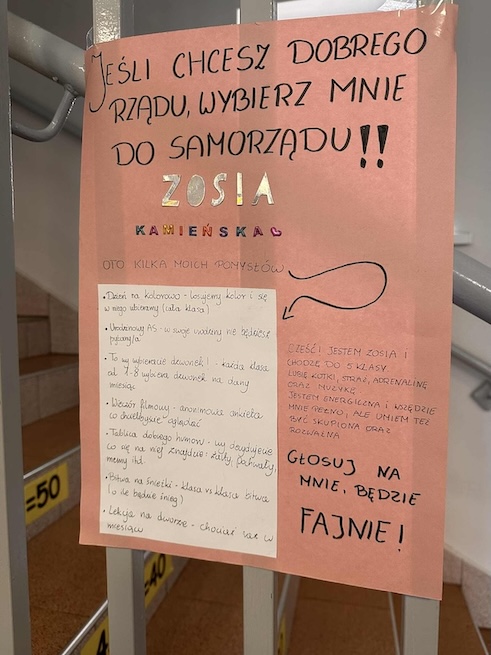 JEŚLI CHCESZ DOBREGO
RZĄDU, WYBIERZ MNIE
DO SAMORZĄDU!!
ZOSIA
KAMIEŃSKA
OTO KILKA MOICH POMYSŁÓW
• Dzień na kolorowo - losujemy kolor i się
w niego ubieramy (cała klasa)
• Urodzinowy AS - w swoje urodziny nie będziesz
pytany/a
• To wy wybieracie dzwonek! - każda klasa
od 7-8 wybiera dzwonek na dany
miesiąc
• Wieczór filmowy - anonimowa ankieta
co chcielibyście oglądać
• Tablica dobrego humoru - wy decydujecie
co się na niej znajdzie: żarty, pochwały,
memy itd.
• Bitwa na śnieżki - klasa vs klasa bitwa
(o ile będzie śnieg)
• Lekcja na dworze - chociaż raz w
miesiącu
CZEŚĆ! JESTEM ZOSIA I
CHODZĘ DO 5 KLASY.
LUBIĘ KOTKI, STRAŻ, ADRENALINĘ
ORAZ MUZYKĘ
JESTEM ENERGICZNA I WSZĘDZIE
MNIE PEŁNO, ALE UMIEM TEŻ
BYĆ SKUPIONA ORAZ
ROZWAŻNA
GŁOSUJ NA
MNIE, BĘDZIE
FAJNIE!
=50
=40
4